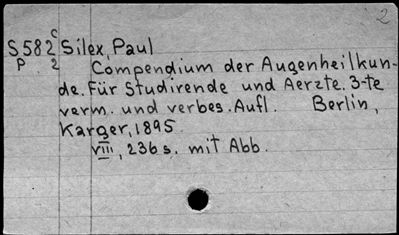 2
S582 c Silex, Paul
P 2 Compendium der Augenheilkun-
de. Für Studirende und Aerzte. 3-te
verm. und verbes. Aufl. Berlin,
Karger, 1895.
VIII, 236 s. mit Abb.